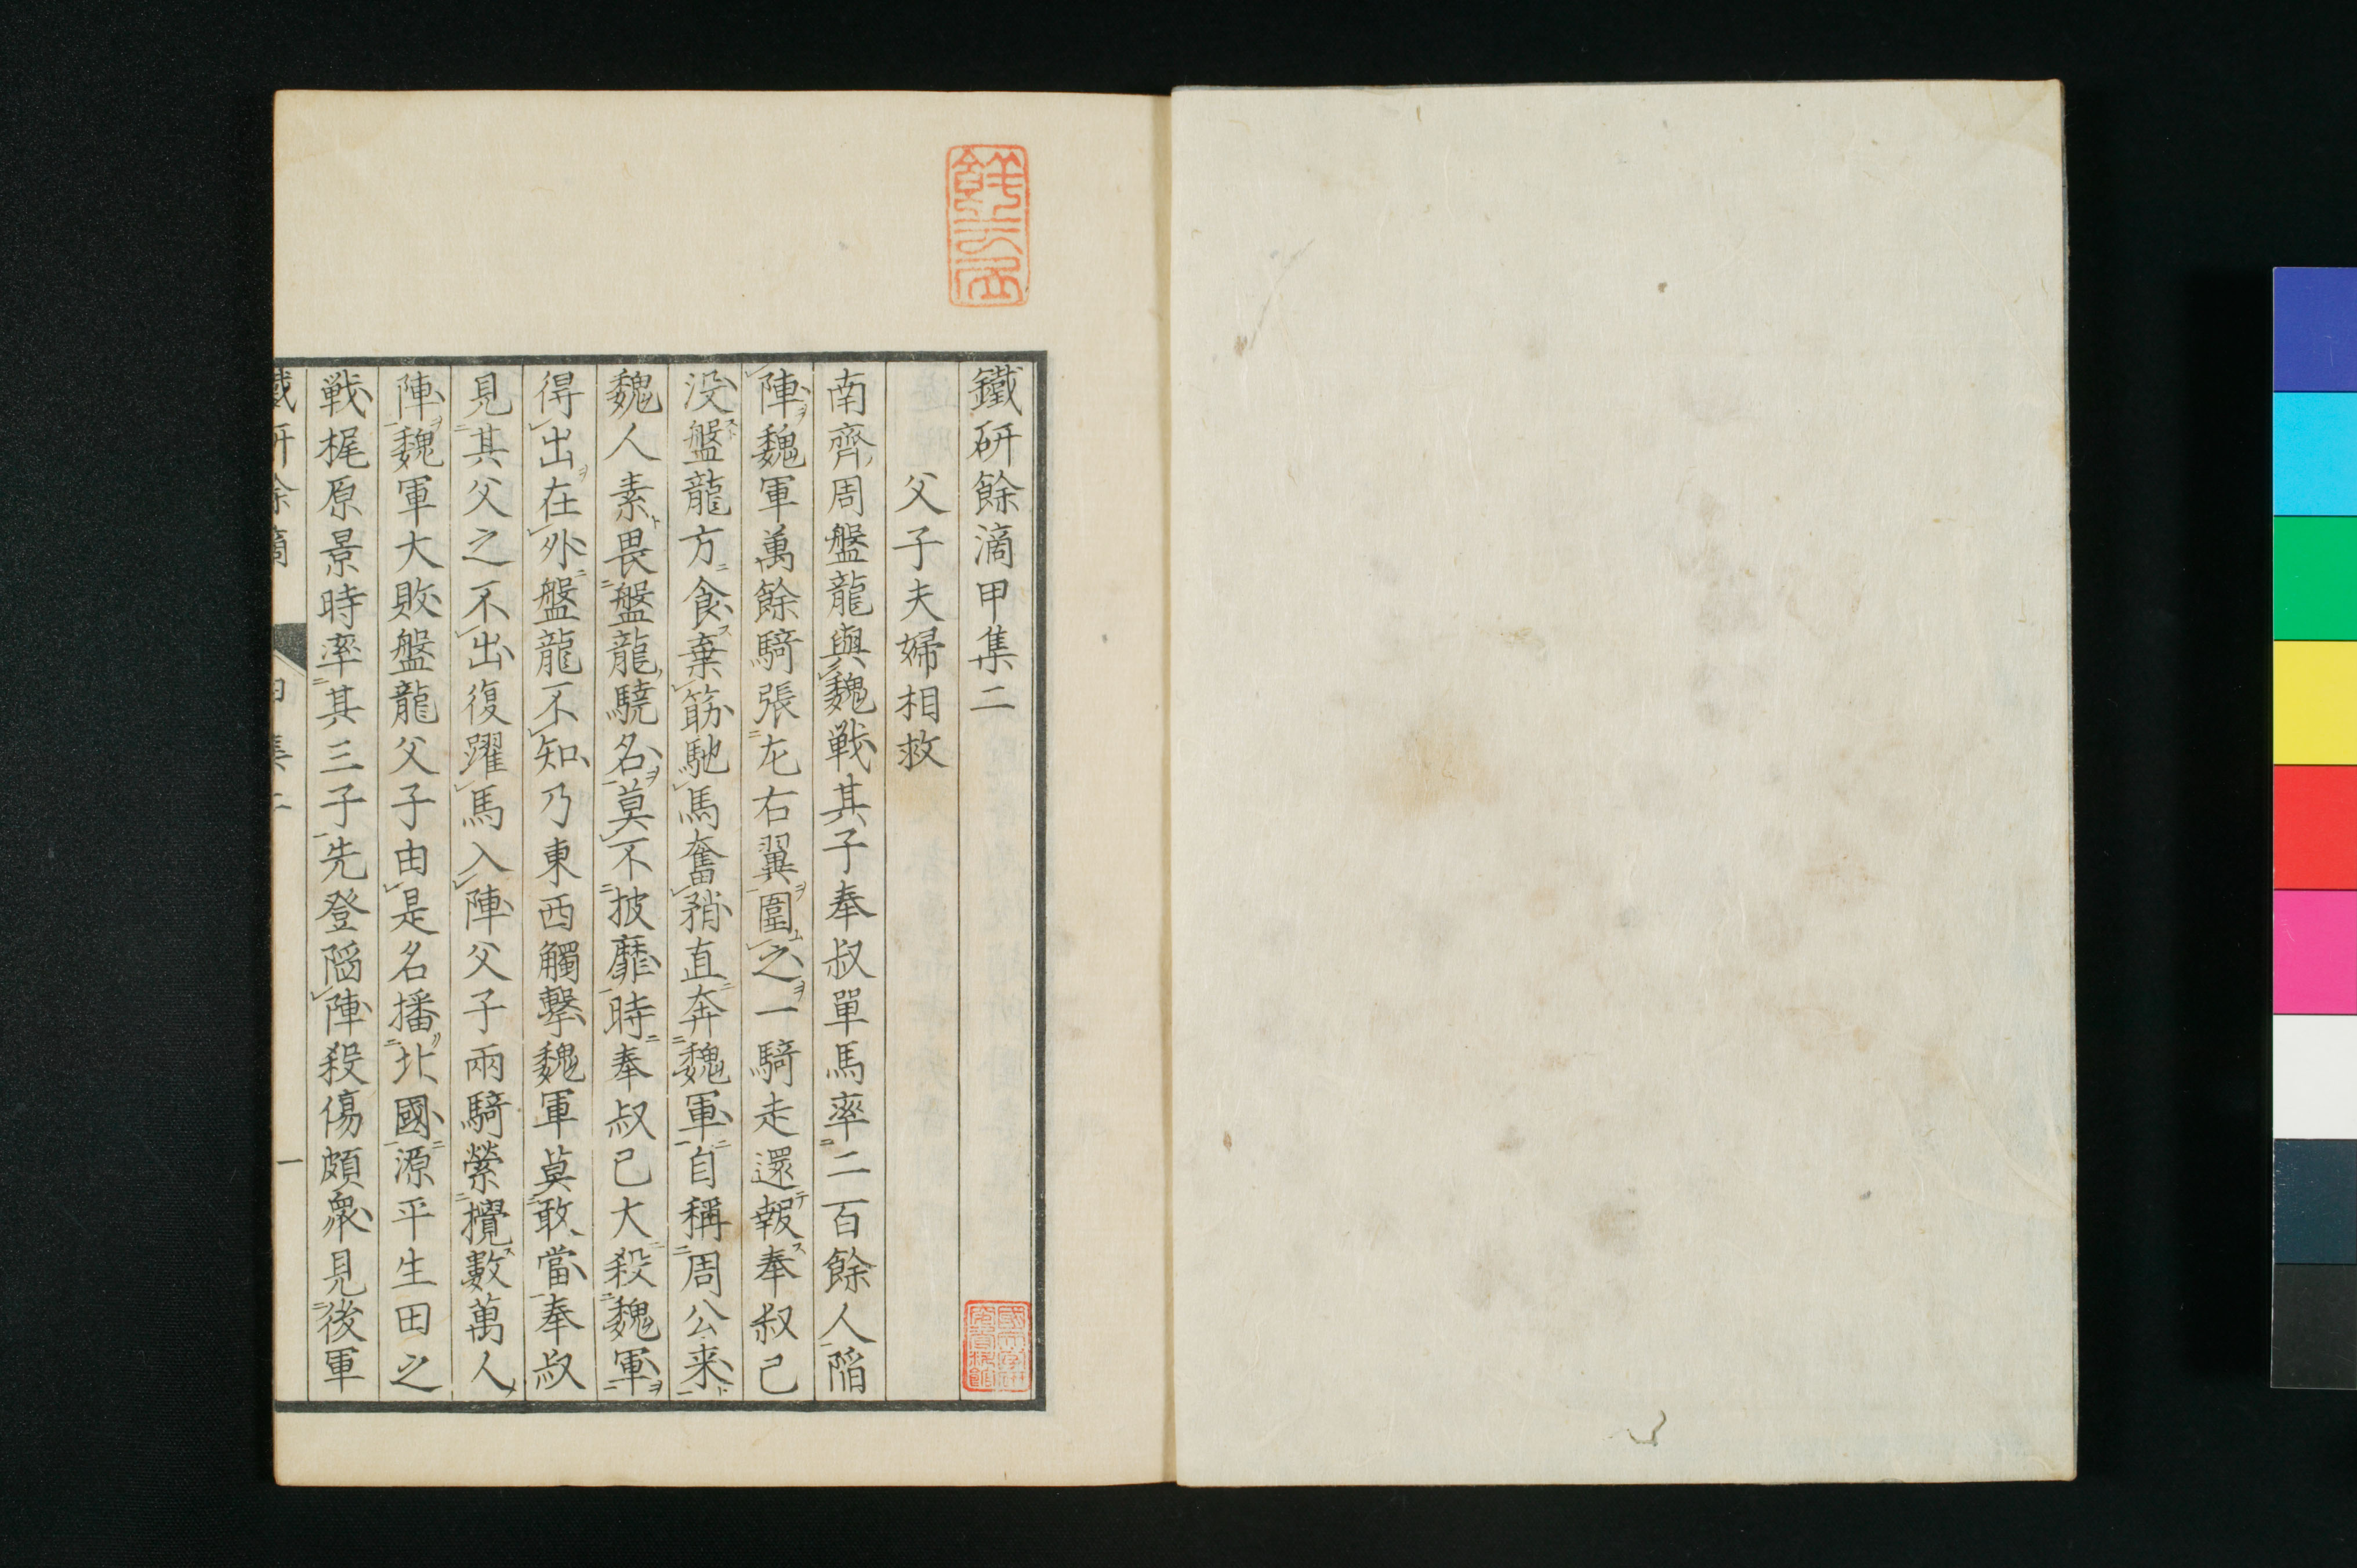 鐵研餘滴甲集二
父子夫婦相救
南齊周盤龍與魏戰其子奉叔單馬率二百餘人陷
陣魏軍萬餘騎張左右翼圍之一騎走還報奉叔已
没盤龍方食棄筯馳馬奮矟直奔魏軍自稱周公来
魏人素畏盤龍驍名莫不披靡時奉叔已大殺魏軍
得出在外盤龍不知乃東西觸擊魏軍莫敢當奉叔
見其父之不出復躍馬入陣父子兩騎縈攪數萬人
陣魏軍大敗盤龍父子由是名播北國源平生田之
戰梶原景時率其三子先登陷陣殺傷頗衆見後軍
鐵研餘滴 甲集二 一